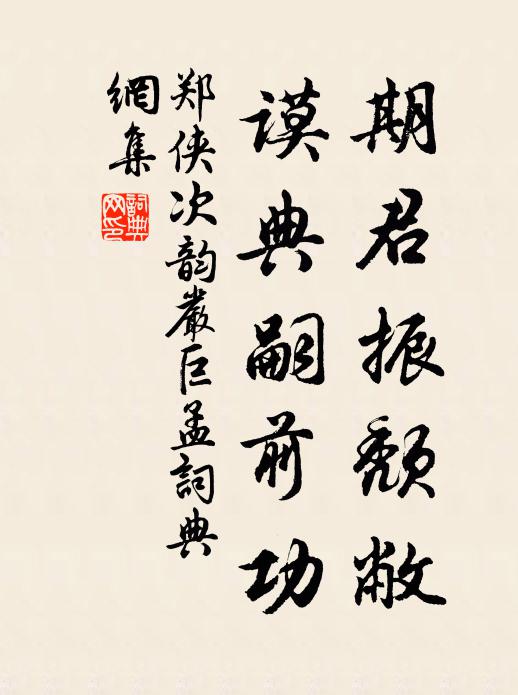 期君振颓敝
謨典嗣前功
郑侠次韵嚴巨孟詞典
網集
詞典
网印